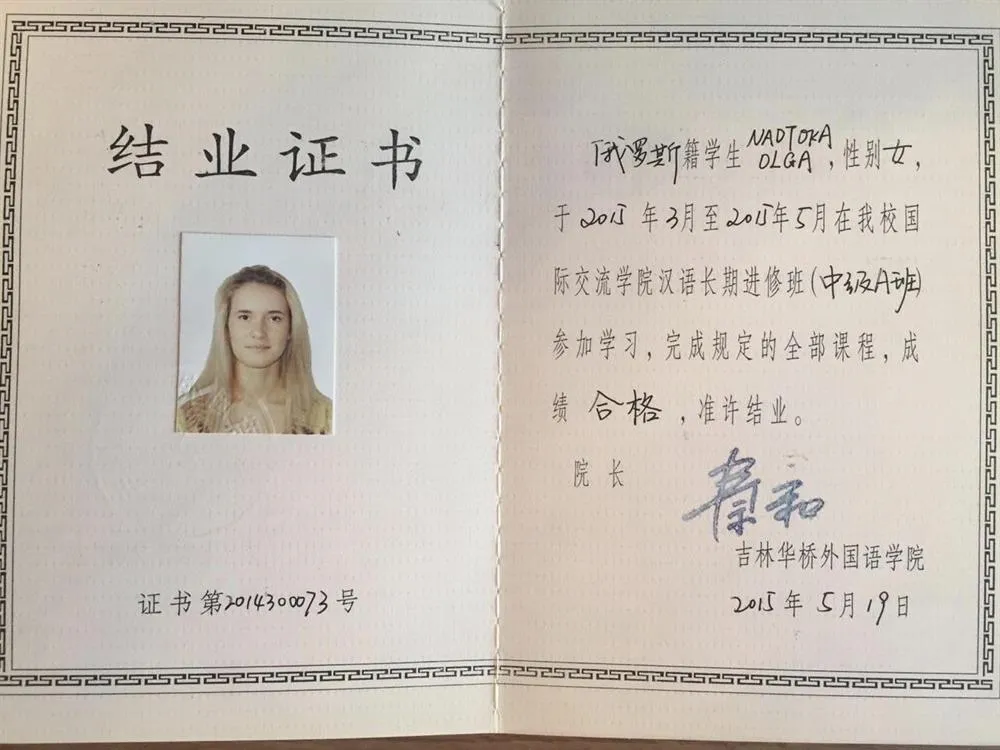 结业证书
证书第2014300073号
俄罗斯籍学生NADTOKA OLGA，性别女，
于2015年3月至2015年5月在我校国
际交流学院汉语长期进修班(中级A班)
参加学习，完成规定的全部课程，成
绩合格，准许结业。
院长 秦和
吉林华桥外国语学院
2015年5月19日